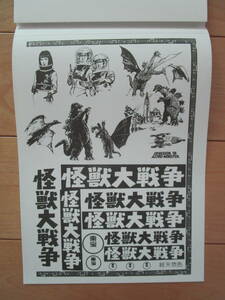 INVASION OF
ASTRO-MONSTER
怪獣大戦争
怪獣大戦争
怪獣大戦争
怪獣大戦争
怪獣大戦争
怪獣大戦争
怪獣大戦争
総天然色